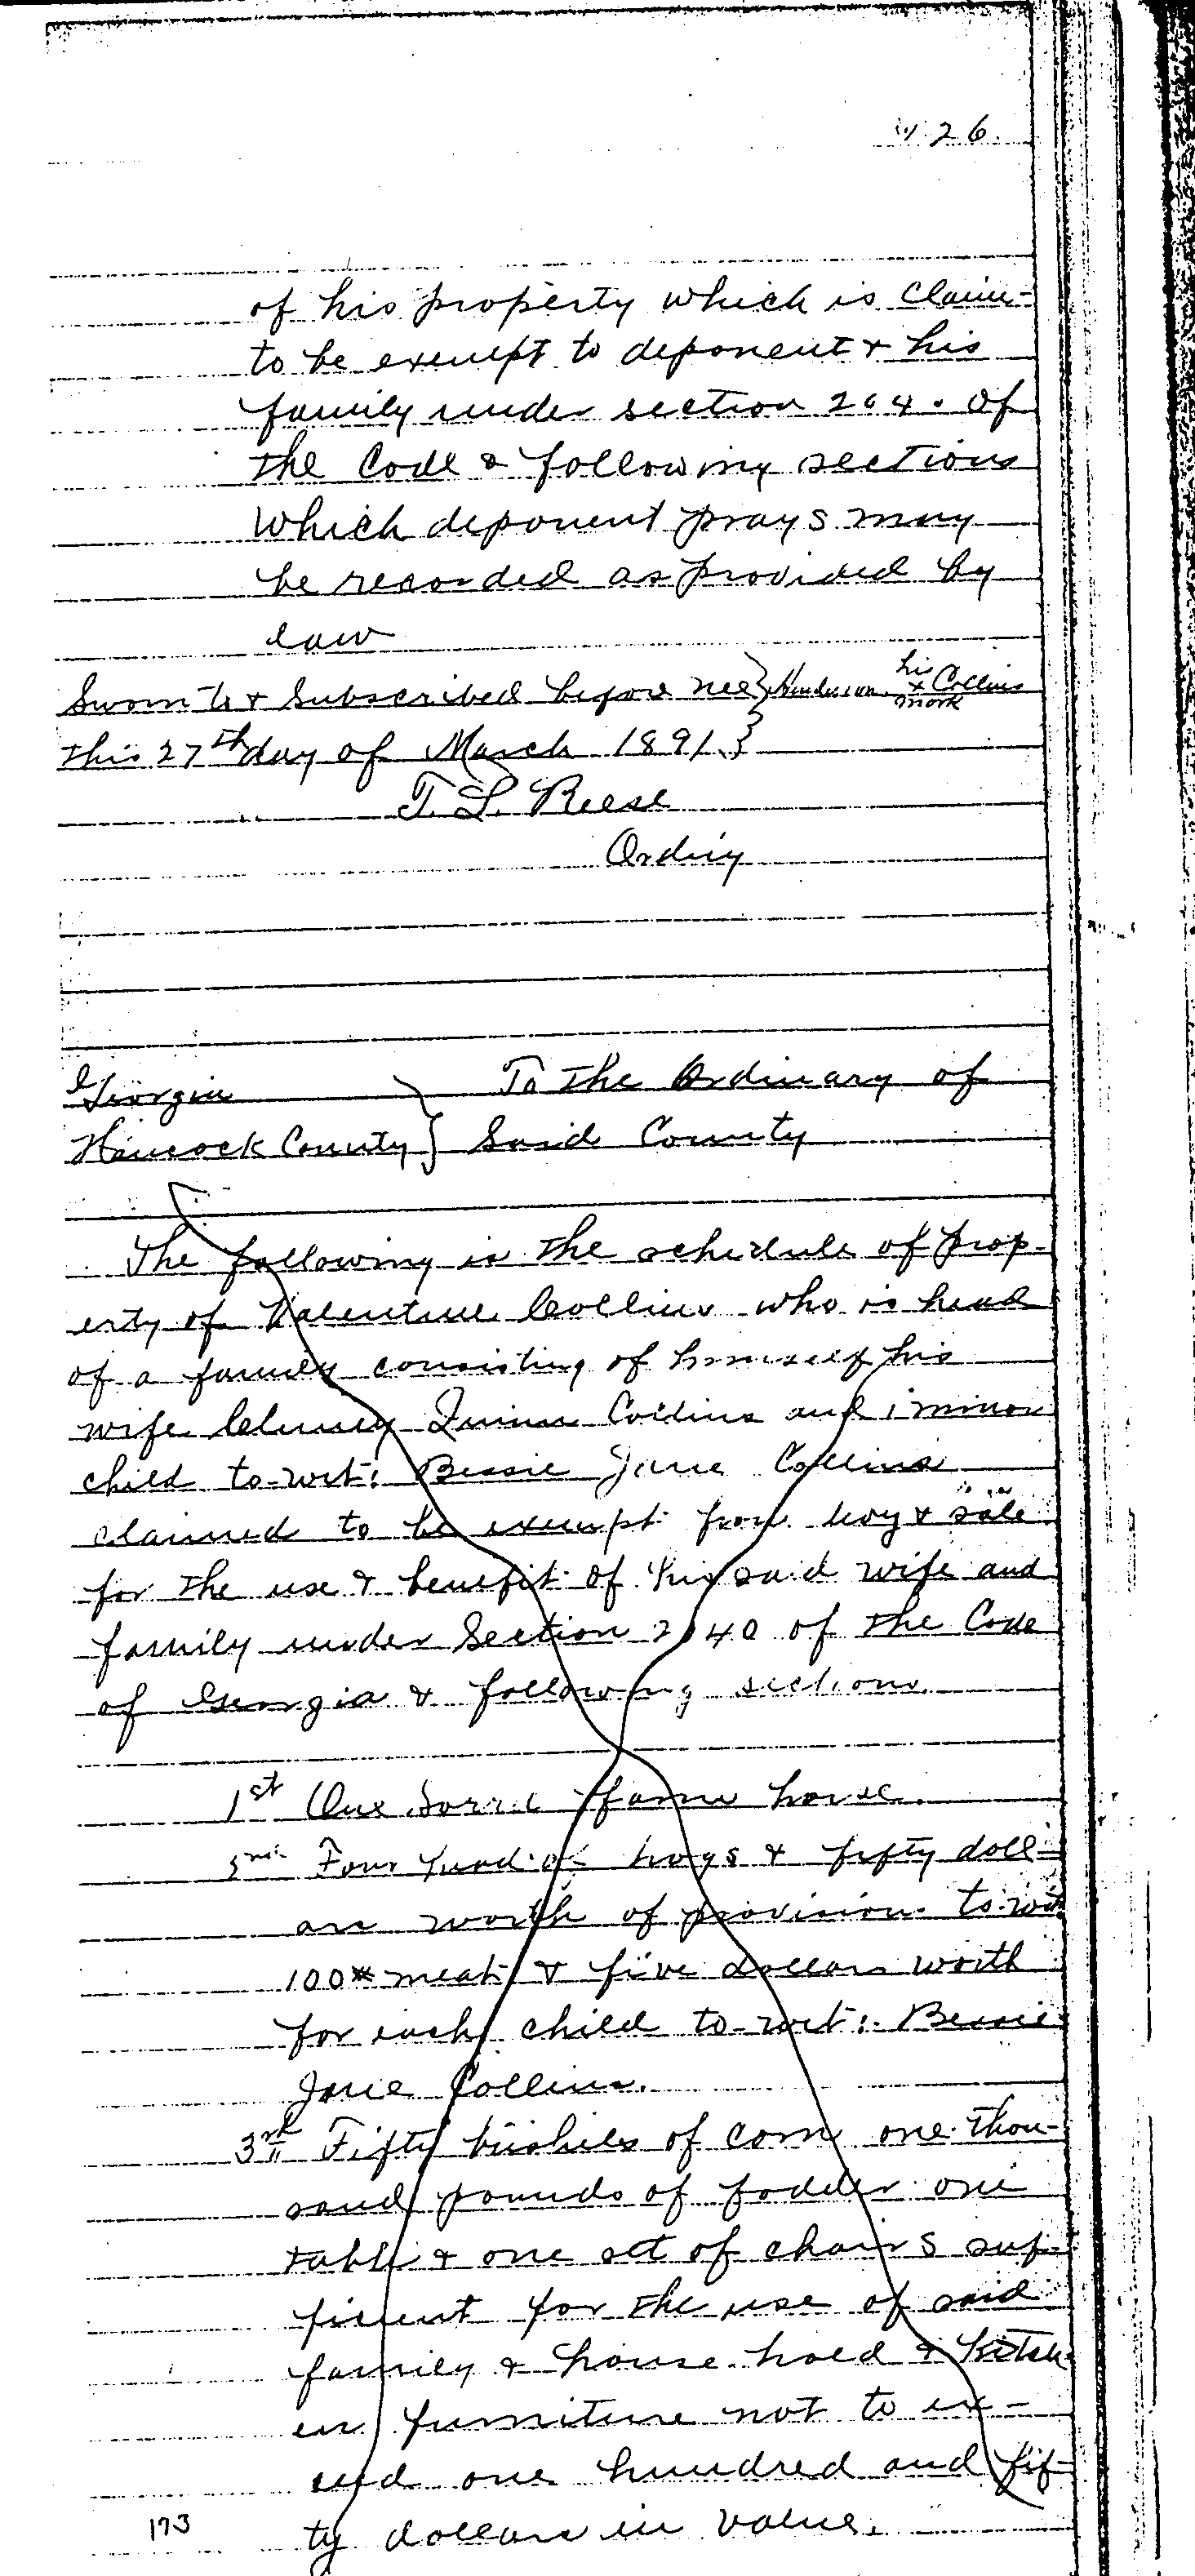 26.
of his property which is claim-
to be exempt to deponent & his
family under section 204. of
the Code & following sections
Which deponent prays may
be recorded as provided by
law
Sworn to & Subscribed before me } Henderson his x mark Collins
this 27th day of March 1891 }
T. L. Reese
Ordiy
Georgia } To the Ordinary of
Hancock County } Said County
The following is the schedule of prop-
erty of Valentine Collins who is head
of a family consisting of himself his
wife Quinn Collins and 1 minor
child to-wit: Bessie Jane Collins
claimed to be exempt from levy & sale
for the use & benefit of his said wife and
family under Section 2040 of the Code
of Georgia & following sections.
1st One Sorrel farm horse.
2nd Four head of hogs & fifty doll-
ars worth of provisions to-wit
100# meat & five dollars worth
for each child to-wit: Bessie
Jane Collins.
3rd Fifty bushels of corn one thou-
sand pounds of fodder one
table & one set of chairs suf-
ficient for the use of said
family & house hold & Kitch-
en furniture not to ex-
ceed one hundred and fif-
ty dollars in value.
173